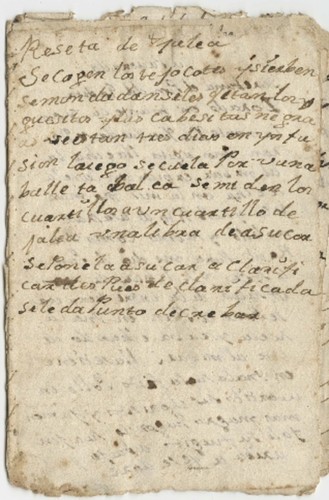 Reseta de Jalea
Se cogen los tejocotes y sierben
se mondadan se les quitan los g
uesitos y sus cabesitas negra
s se stan tres dias en ynfu
sion luego se cuela por una
balleta balca se miden los
cuartillos a un cuartillo de
jalea una libra de asucar
se pone la asucar a clarifi
car despues de clarificada
se le da punto de crebar